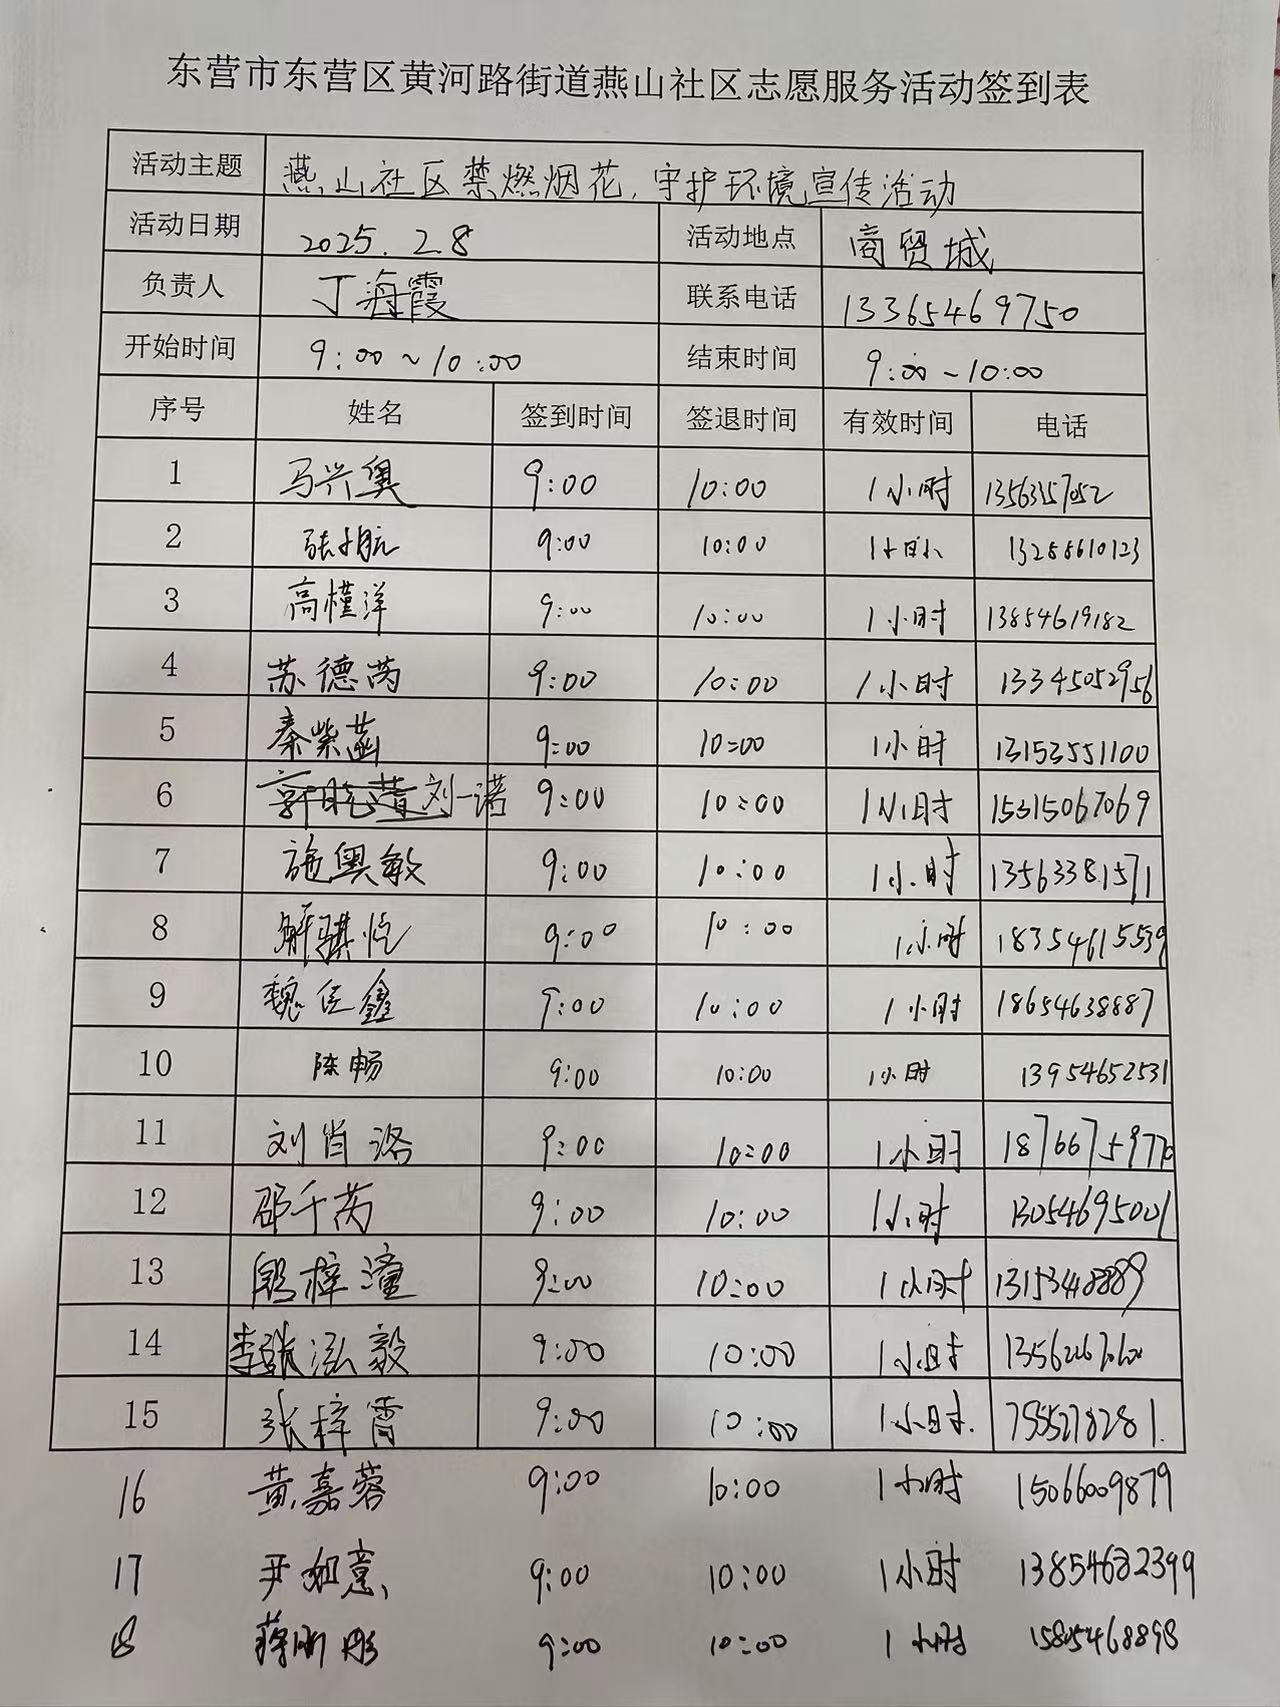 东营市东营区黄河路街道燕山社区志愿服务活动签到表
活动主题 燕山社区禁燃烟花,守护环境宣传活动
活动日期 2025.2.8 活动地点 商贸城
负责人 丁海霞 联系电话 13365469750
开始时间 9:00~10:00 结束时间 9:00~10:00
序号 姓名 签到时间 签退时间 有效时间 电话
1 马兴奥 9:00 10:00 1小时 13563357052
2 9:00 10:00 1小时 13258610123
3 高槿洋 9:00 10:00 1小时 13854619182
4 苏德芮 9:00 10:00 1小时 13345052956
5 秦紫菡 9:00 10:00 1小时 13153551100
6 刘一诺 9:00 10:00 1小时 15315067069
7 施奥敏 9:00 10:00 1小时 13563381571
8 解骐恺 9:00 10:00 1小时 18354615539
9 魏佳鑫 9:00 10:00 1小时 18654638887
10 陈畅 9:00 10:00 1小时 13954652531
11 刘肖洛 9:00 10:00 1小时 18766759770
12 邵千芮 9:00 10:00 1小时 13054695001
13 段梓潼 9:00 10:00 1小时 13153418889
14 张泓毅 9:00 10:00 1小时
15 张梓霄 9:00 10:00 1小时.
16 黄嘉蓉 9:00 10:00 1小时 15066009879
17 尹如意 9:00 10:00 1小时 13854682399
18 9:00 10:00 1小时 15805468898